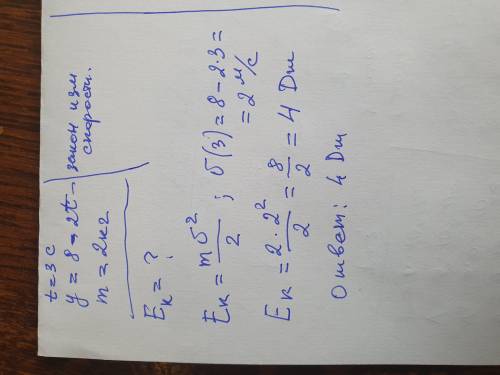 t = 3 c
y = 8 - 2t - закон изм
скорости.
m = 2 кг
Eк = ?
Eк = mυ²/2 ; υ(3) = 8 - 2·3 =
= 2 м/с
Eк = 2·2²/2 = 8/2 = 4 Дж
Ответ: 4 Дж